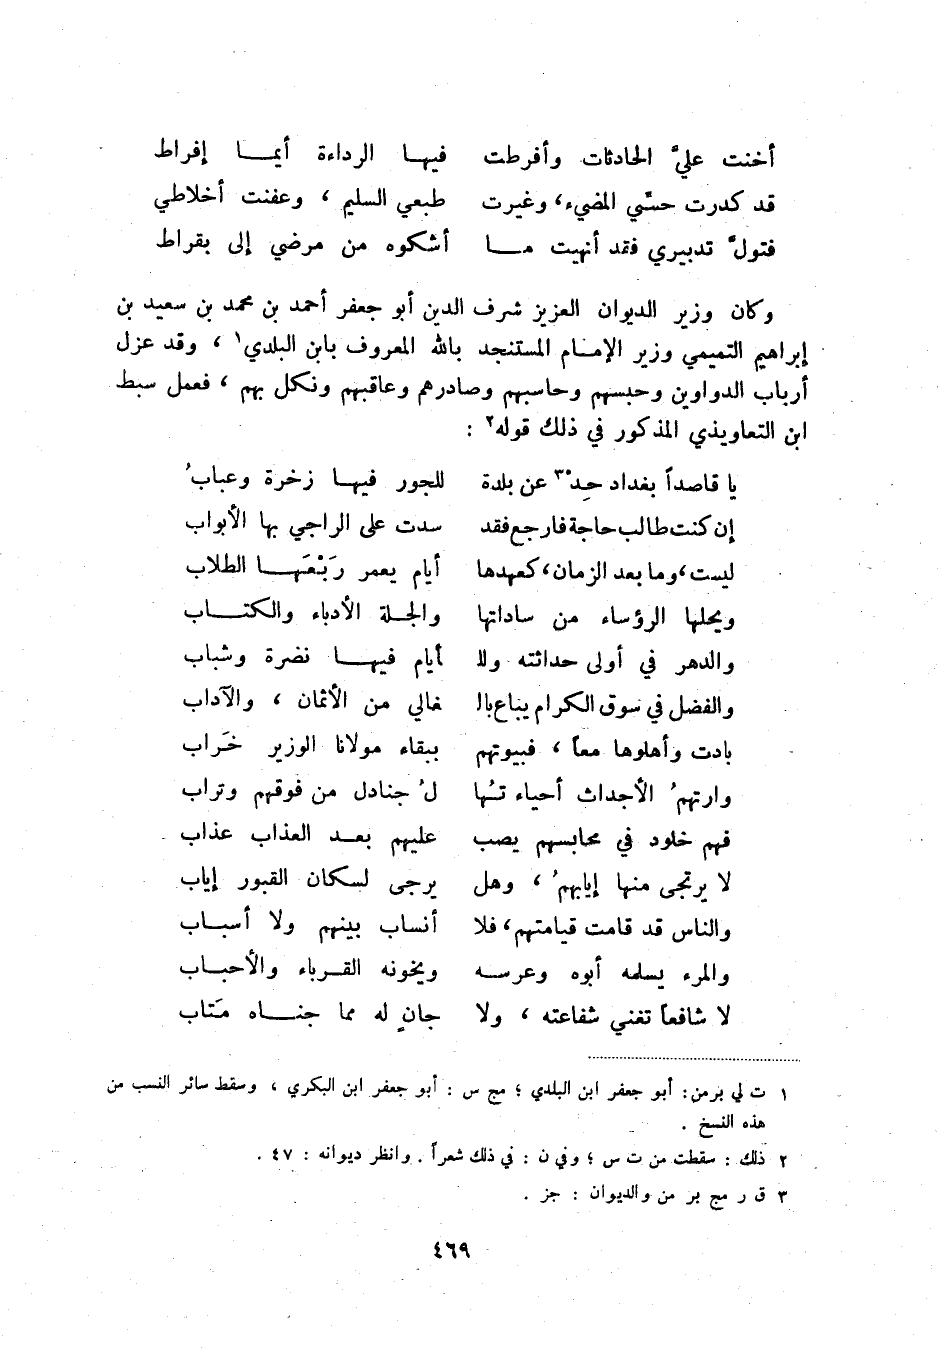 أخنت عليَّ الحادثات وأفرطت فيها الرداءة أيما إفراط
قد كدرت حسّي المضيء، وغيرت طبعي السليم ، وعفنت أخلاطي
فتولَّ تدبيري فقد أنهيت ما أشكوه من مرضي إلى بقراط
وكان وزير الديوان العزيز شرف الدين أبو جعفر أحمد بن محمد بن سعيد بن
إبراهيم التميمي وزير الإمام المستنجد بالله المعروف بابن البلدي١ ، وقد عزل
أرباب الدواوين وحبسهم وحاسبهم وصادرهم وعاقبهم ونكل بهم ، فعمل سبط
ابن التعاويذي المذكور في ذلك قوله٢ :
يا قاصداً بغداد حِدْ٣ عن بلدة للجور فيها زخرة وعبابُ
إن كنت طالب حاجة فارجع فقد سدت على الراجي بها الأبواب
ليست، وما بعد الزمان، كعهدها أيام يعمر رَبْعَها الطلاب
ويحلها الرؤساء من ساداتها والجلة الأدباء والكتاب
والدهر في أولى حداثته ولل أيام فيها نضرة وشباب
والفضل في سوق الكرام يباع بال غالي من الأثمان ، والآداب
بادت وأهلوها معاً ، فبيوتهم ببقاء مولانا الوزير خَراب
وارتهمُ الأجداث أحياء تها لُ جنادل من فوقهم وتراب
فهم خلود في محابسهم يصب عليهم بعد العذاب عذاب
لا يرتجى منها إيابهمُ ، وهل يرجى لسكان القبور إياب
والناس قد قامت قيامتهم، فلا أنساب بينهم ولا أسباب
والمرء يسلمه أبوه وعرسه ويخونه القرباء والأحباب
لا شافعاً تغني شفاعته ، ولا جانٍ له مما جناه مَتاب
١ ت لي بر من : أبو جعفر ابن البلدي ؛ مج س : أبو جعفر ابن البكري ، وسقط سائر النسب من
هذه النسخ .
٢ ذلك : سقطت من ت س ؛ وفي ن : في ذلك شعراً . وانظر ديوانه : ٤٧ .
٣ ق ر مج بر من والديوان : جز .
٤٦٩